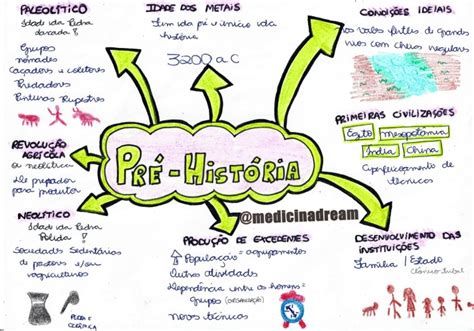 PALEOLÍTICO
Idade da Pedra
Lascada!
Grupos
nômades
Caçadores e coletores
Predadores
Pinturas Rupestres
IDADE DOS METAIS
Fim da pré e início da
história
3200 a.C
CONDIÇÕES IDEAIS
nos vales férteis de grandes
rios com cheias regulares
PRÉ-HISTÓRIA
@medicinadream
REVOLUÇÃO
AGRÍCOLA
ou neolítica
De predador
para produtor
PRIMEIRAS CIVILIZAÇÕES
Egito Mesopotamia
Índia China
Aperfeiçoamento de
técnicas
NEOLÍTICO
Idade da Pedra
Polida!
Sociedades Sedentárias
de pastores e/ou
agricultores
PEDRA E
CERÂMICA
PRODUÇÃO DE EXCEDENTES
População = agrupamentos
Outras atividades
Dependência entre os homens =
grupos (ORGANIZAÇÃO)
Novas técnicas
DESENVOLVIMENTO DAS
INSTITUIÇÕES
Família / Estado